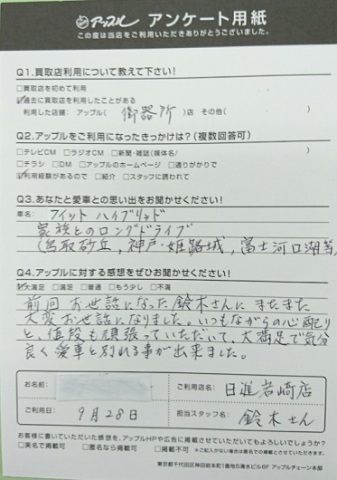 アップル アンケート用紙
この度は当店をご利用いただきありがとうございました。
Q1.買取店利用について教えて下さい!
□買取店を初めて利用
☑過去に買取店を利用したことがある
利用した店舗:アップル( 御器所 )店 その他( )
Q2.アップルをご利用になったきっかけは?(複数回答可)
□テレビCM □ラジオCM □新聞・雑誌(媒体名/ )
□チラシ □DM □アップルのホームページ □通りがかりで
☑利用経験があるので □紹介 □スタッフに誘われて
Q3.あなたと愛車との思い出をお聞かせください!
車名: フィット ハイブリッド
家族とのロングドライブ
(鳥取砂丘,神戸・姫路城,富士河口湖等)
Q4.アップルに対する感想をぜひお聞かせください!
☑大満足 □満足 □普通 □もう少し □不満
前回お世話になった鈴木さんにまたまた
大変お世話になりました。いつもながらの心配り
と、値段も頑張っていただいて、大満足で気分
良く愛車と別れる事が出来ました。
お名前:
ご利用店名: 日進岩崎店
ご利用日: 9月28日
担当スタッフ名: 鈴木さん
お客様に書いていただいた感想を、アップルHPや広告に掲載させていただいてもよろしいでしょうか?
□実名で掲載可 □匿名なら掲載可 □掲載不可 ※ご記入がない場合は匿名での掲載とさせていただきます。